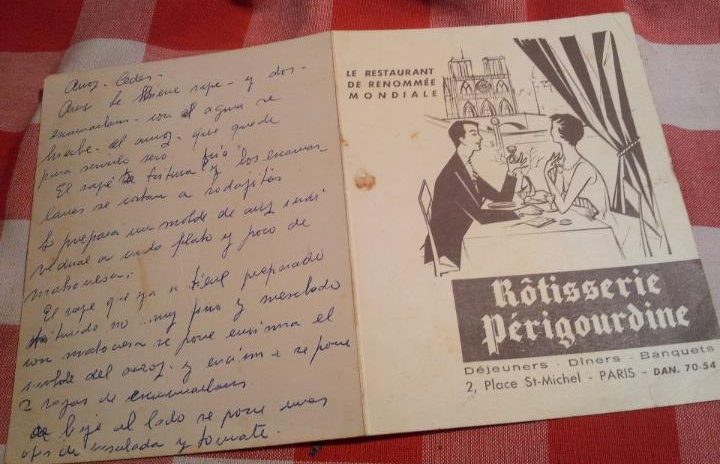 Arroz - Cedes -
Arroz Se hierve rape - y dos -
escamarlans - con el agua se
hierbe - el arroz - que quede
para servirlo será frio
El rape se tritura y los escamar-
lanes se cortan a rodajitas
Se prepara un molde de arroz indi
vidual a cada plato y poco de
maionesa.
El rape que ya se tiene preparado
triturado no muy fino y mezclado
con maionesa se pone encima el
molde del arroz y encima se pone
2 rajas de escamarlans
bajo al lado se pone unas
ojas de ensalada y tomate.
LE RESTAURANT
DE RENOMMÉE
MONDIALE
Rôtisserie
Périgourdine
Déjeuners - Dîners - Banquets
2, Place St-Michel - PARIS - DAN. 70-54